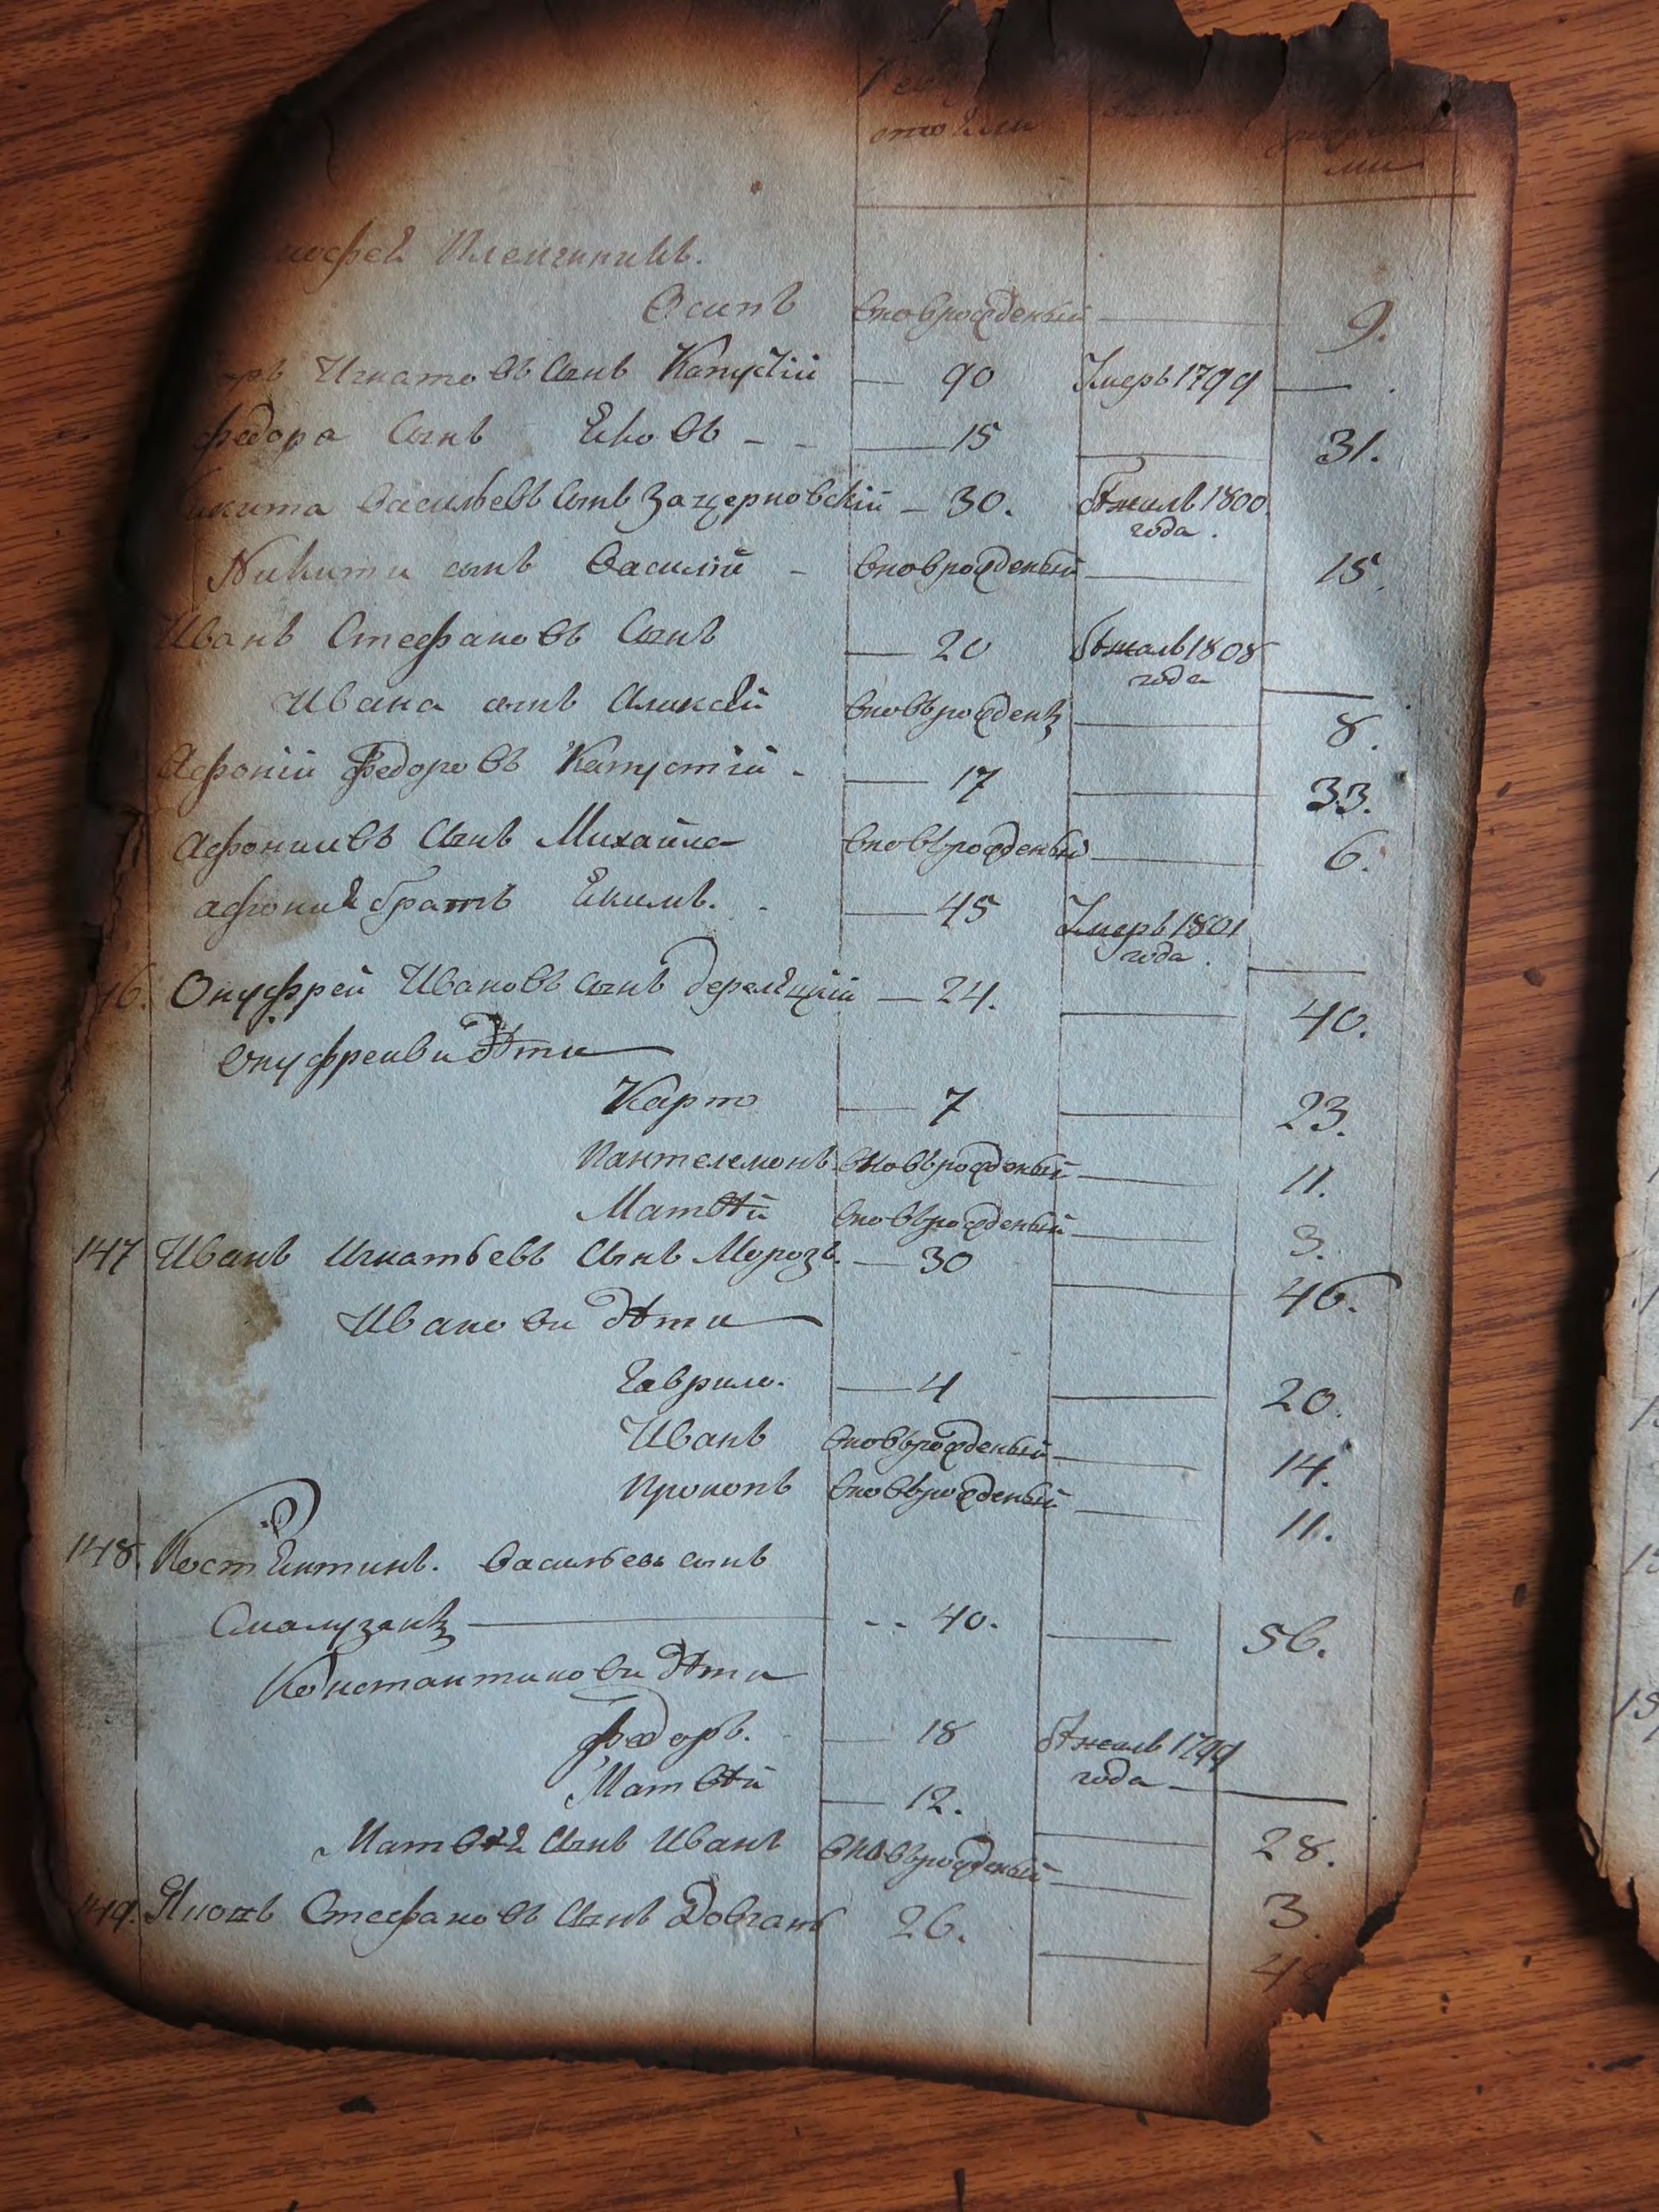 ото
ми
Осипъ вновърожденый 9.
Игнатовъ сынъ Капустій 90 Умеръ 1799
Федора сынъ Яковъ 15 31.
Никита Васильевъ сынъ Зачерновскій 30. Бѣжалъ 1800
года.
Никити сынъ Василій вновърожденый 15.
Иванъ Стефановъ сынъ 20 Бѣжалъ 1808
года
Ивана сынъ Аликсѣй вновърожденъ 8.
Афоній Федоровъ Капустій 17 33.
Афониивъ сынъ Михайла вновърожденый 6.
Афония братъ Екимъ. 45 Умеръ 1801
года.
46. Онуфрей Ивановъ сынъ 24. 40.
Онуфреиви дѣти
Карпо 7 23.
Пантелемонъ вновърожденый 11.
Матвѣй вновърожденый 3.
147 Иванъ Игнатьевъ сынъ Морозъ. 30 46.
Иванови дѣти
Гаврило. 4 20.
Иванъ вновърожденый 14.
Прокопъ вновърожденый 11.
148. Костянтинъ. Васильевъ сынъ
40. 56.
Константинови дѣти
Федоръ. 18 Бѣжалъ 1799
года
Матвѣй 12. 28.
Матвѣя сынъ Иванъ вновърожденый 3
149. Стефановъ сынъ Довгань 26.